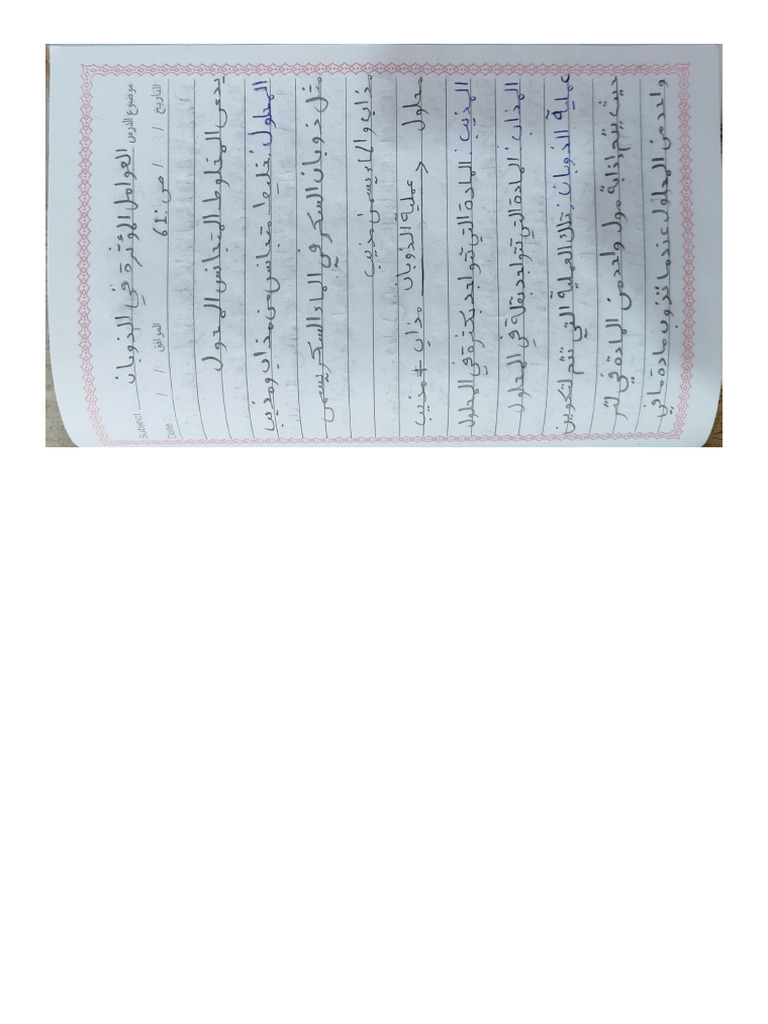 موضوع الدرس العوامل المؤثرة في الذوبان Subject
التاريخ / / ص: 61 الموافق / / Date
يدعى المخلوط المتجانس المحلول
المحلول: خليط متجانس من مذاب ومذيب
مثل ذوبان السكر في الماء السكر يسمى
مذاب والماء يسمى مذيب
مذاب + مذيب عملية الذوبان > محلول
المذيب: المادة التي تتواجد بكثرة في المحلول
المذاب: المادة التي تتواجد بقلة في المحلول
عملية الذوبان: تلك العملية التي تتم لتكوين
حيث يتم إذابة مول واحد من المادة في لتر
واحد من المحلول عندما تذوب مادة ما في